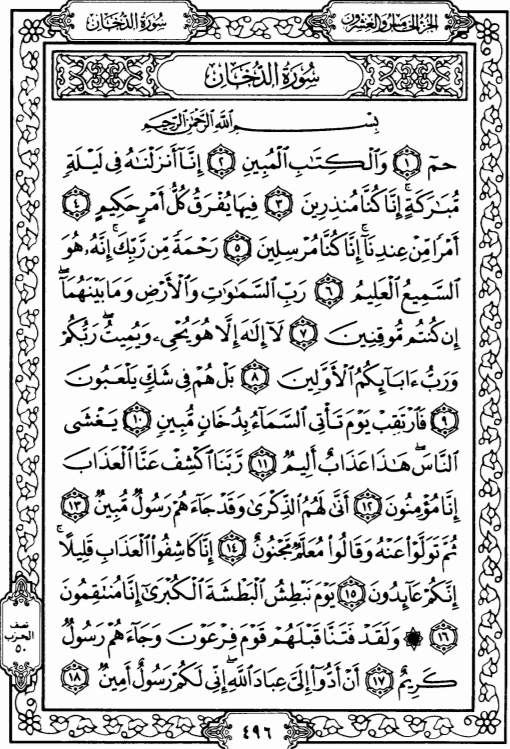 سُورَةُ الدُّخَانِ
الجُزْءُ الخَامِسُ وَالعِشْرُونَ
سُورَةُ الدُّخَانِ
بِسْمِ اللَّهِ الرَّحْمَٰنِ الرَّحِيمِ
حمٓ ١ وَٱلْكِتَٰبِ ٱلْمُبِينِ ٢ إِنَّآ أَنزَلْنَٰهُ فِى لَيْلَةٍ
مُّبَٰرَكَةٍ ۚ إِنَّا كُنَّا مُنذِرِينَ ٣ فِيهَا يُفْرَقُ كُلُّ أَمْرٍ حَكِيمٍ ٤
أَمْرًا مِّنْ عِندِنَآ ۚ إِنَّا كُنَّا مُرْسِلِينَ ٥ رَحْمَةً مِّن رَّبِّكَ ۚ إِنَّهُۥ هُوَ
ٱلسَّمِيعُ ٱلْعَلِيمُ ٦ رَبِّ ٱلسَّمَٰوَٰتِ وَٱلْأَرْضِ وَمَا بَيْنَهُمَآ ۖ
إِن كُنتُم مُّوقِنِينَ ٧ لَآ إِلَٰهَ إِلَّا هُوَ يُحْىِۦ وَيُمِيتُ ۖ رَبُّكُمْ
وَرَبُّ ءَابَآئِكُمُ ٱلْأَوَّلِينَ ٨ بَلْ هُمْ فِى شَكٍّ يَلْعَبُونَ
٩ فَٱرْتَقِبْ يَوْمَ تَأْتِى ٱلسَّمَآءُ بِدُخَانٍ مُّبِينٍ ١٠ يَغْشَى
ٱلنَّاسَ ۖ هَٰذَا عَذَابٌ أَلِيمٌ ١١ رَّبَّنَا ٱكْشِفْ عَنَّا ٱلْعَذَابَ
إِنَّا مُؤْمِنُونَ ١٢ أَنَّىٰ لَهُمُ ٱلذِّكْرَىٰ وَقَدْ جَآءَهُمْ رَسُولٌ مُّبِينٌ ١٣
ثُمَّ تَوَلَّوْا۟ عَنْهُ وَقَالُوا۟ مُعَلَّمٌ مَّجْنُونٌ ١٤ إِنَّا كَاشِفُوا۟ ٱلْعَذَابِ قَلِيلًا ۚ
إِنَّكُمْ عَآئِدُونَ ١٥ يَوْمَ نَبْطِشُ ٱلْبَطْشَةَ ٱلْكُبْرَىٰٓ إِنَّا مُنتَقِمُونَ
١٦ ۞ وَلَقَدْ فَتَنَّا قَبْلَهُمْ قَوْمَ فِرْعَوْنَ وَجَآءَهُمْ رَسُولٌ
كَرِيمٌ ١٧ أَنْ أَدُّوٓا۟ إِلَىَّ عِبَادَ ٱللَّهِ ۖ إِنِّى لَكُمْ رَسُولٌ أَمِينٌ ١٨
نصف
الحزب
٥٠
٤٩٦